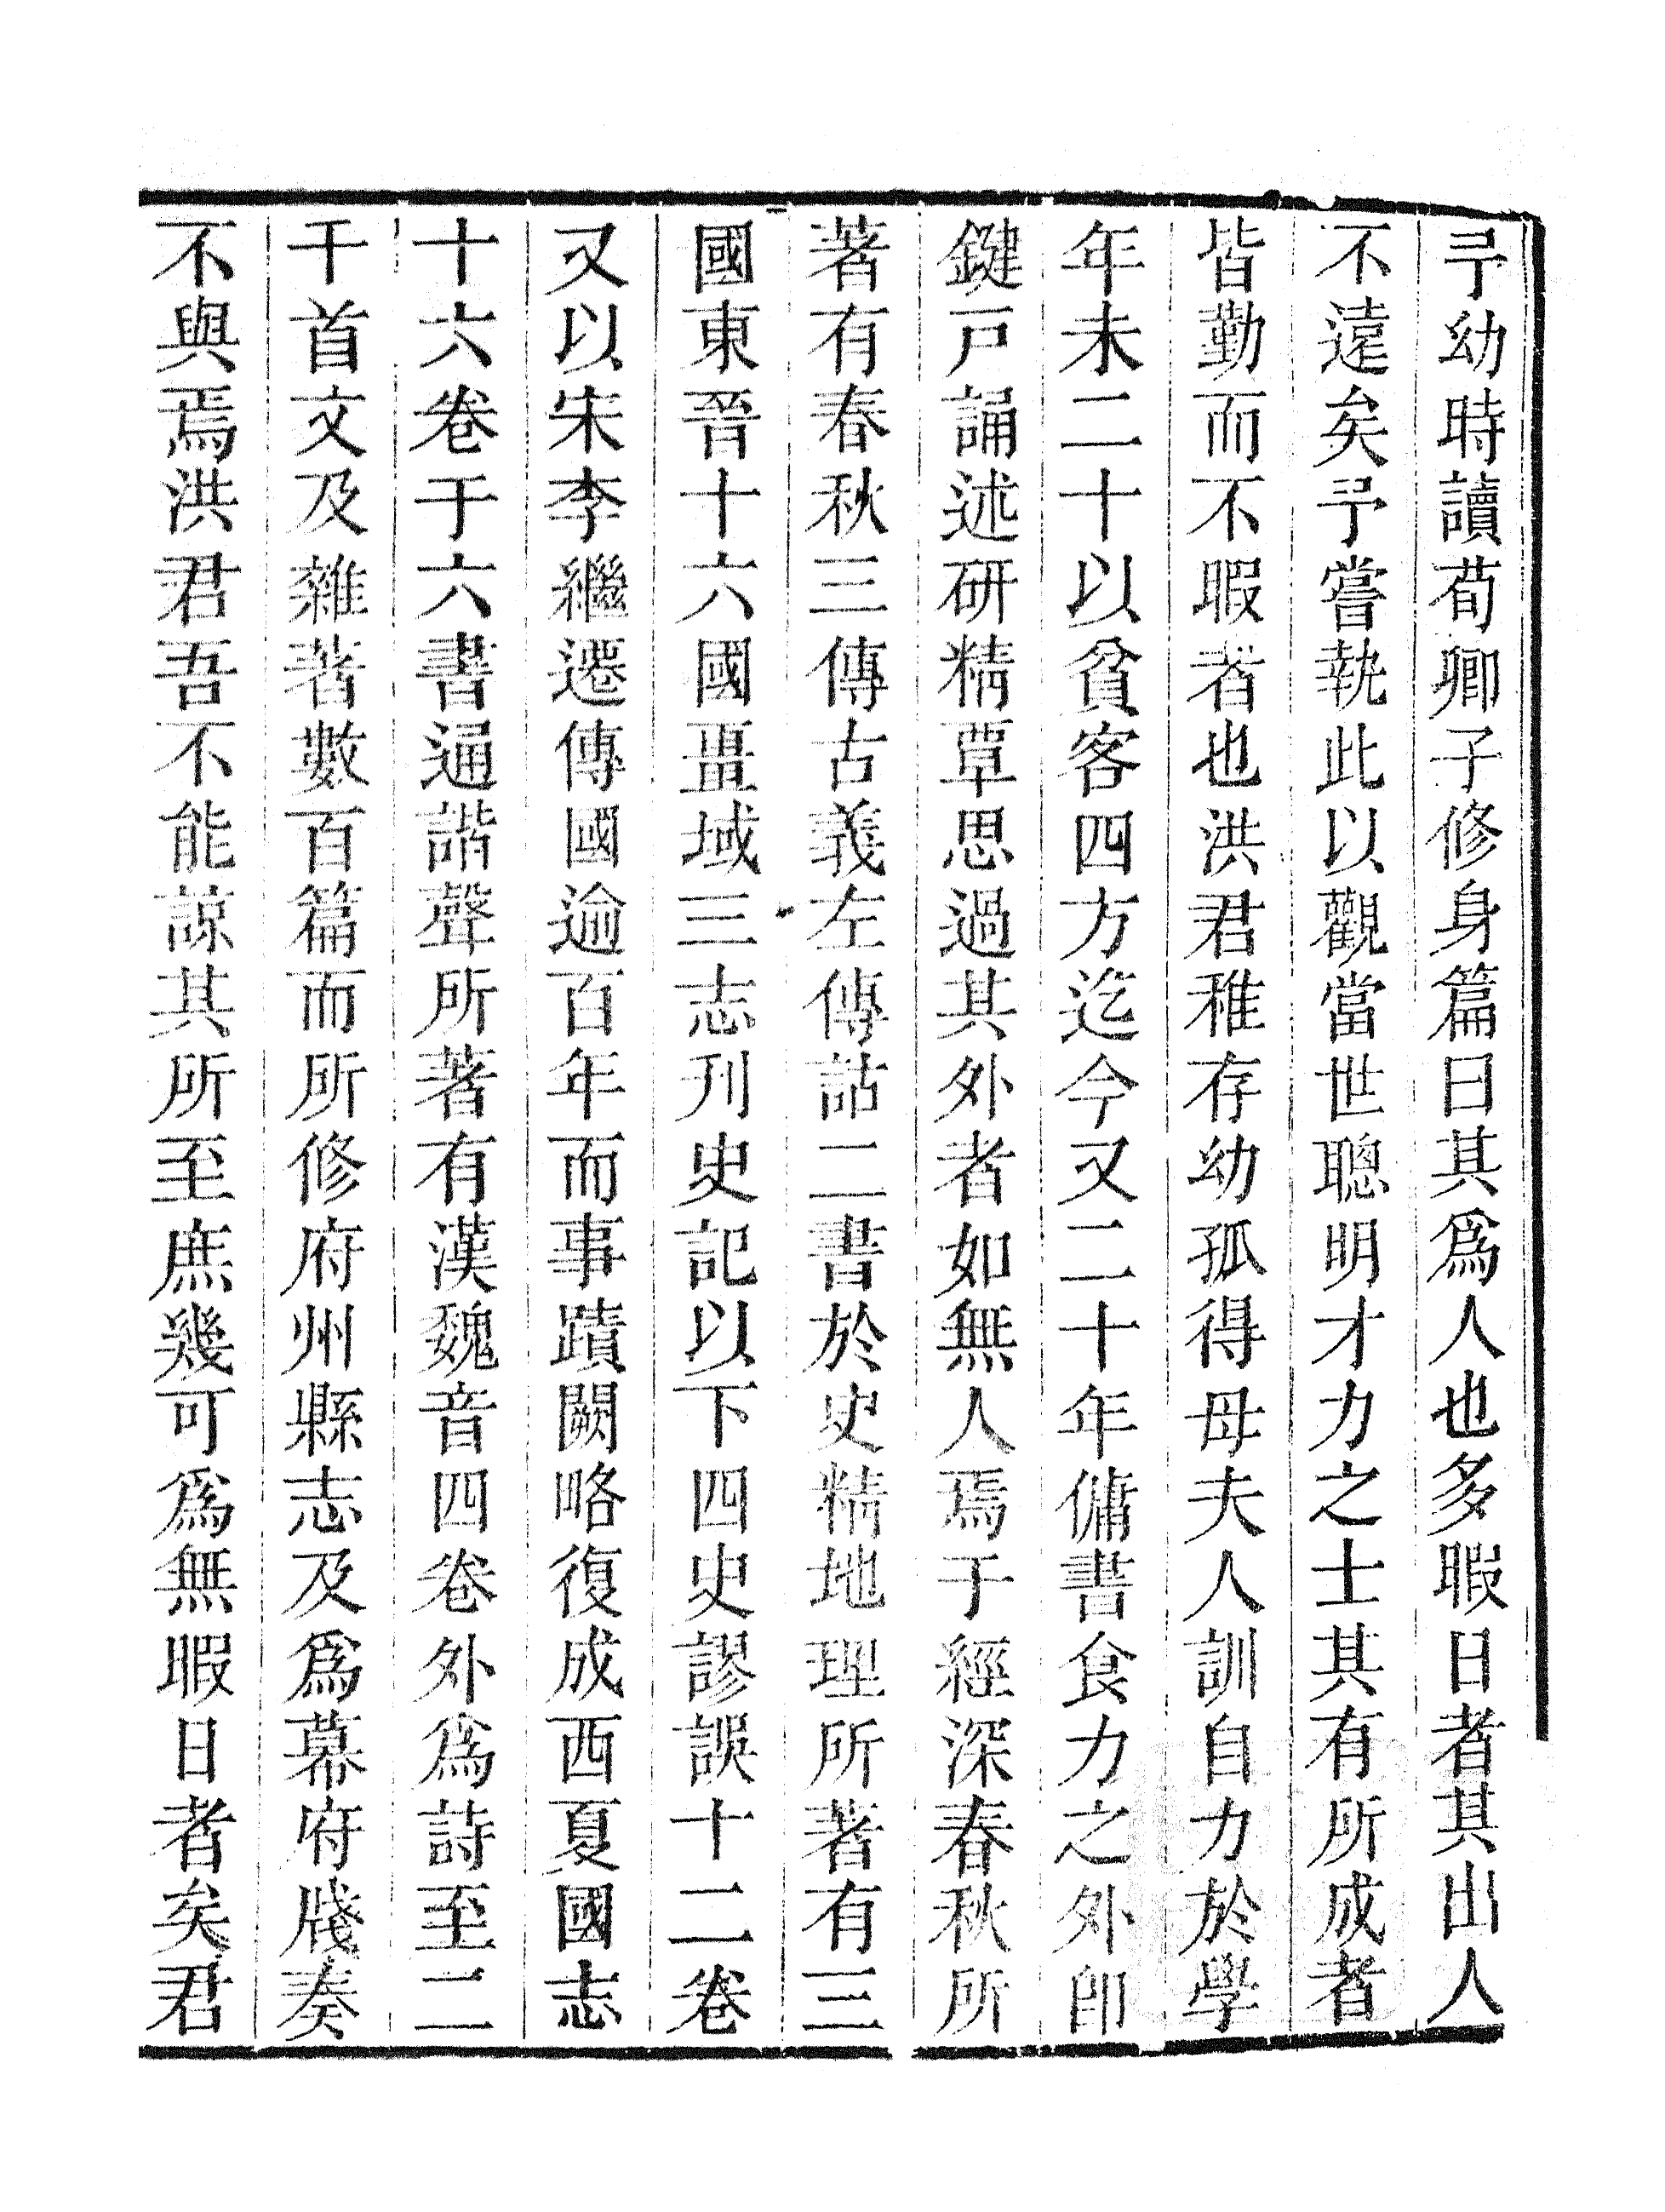 予幼時讀荀卿子修身篇曰其爲人也多暇日者其出人
不遠矣予嘗執此以觀當世聰明才力之士其有所成者
皆勤而不暇者也洪君稚存幼孤得母夫人訓自力於學
年未二十以貧客四方迄今又二十年傭書食力之外卽
鍵戸誦述研精覃思過其外者如無人焉于經深春秋所
著有春秋三傳古義左傳詁二書於史精地理所著有三
國東晉十六國畺域三志刋史記以下四史謬誤十二卷
又以宋李繼遷傳國逾百年而事蹟闕略復成西夏國志
十六卷于六書通諧聲所著有漢魏音四卷外爲詩至二
千首文及雜著數百篇而所修府州縣志及爲幕府牋奏
不與焉洪君吾不能諒其所至庶幾可爲無暇日者矣君